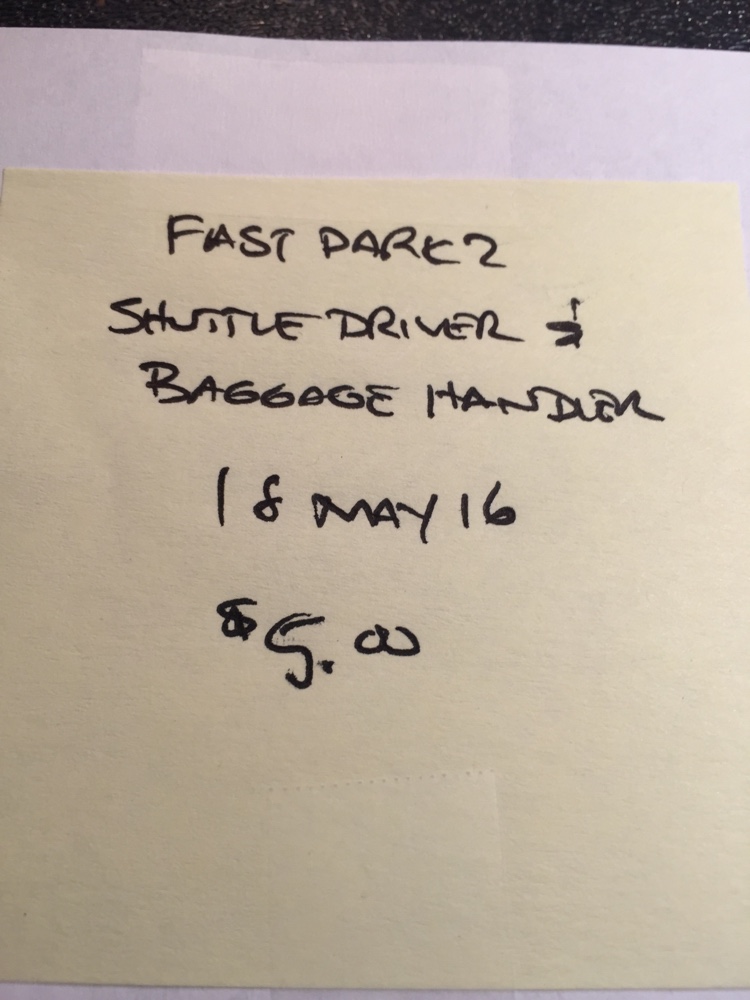 FAST PARK 2
SHUTTLE DRIVER &
BAGGAGE HANDLER
18 MAY 16
$5.00